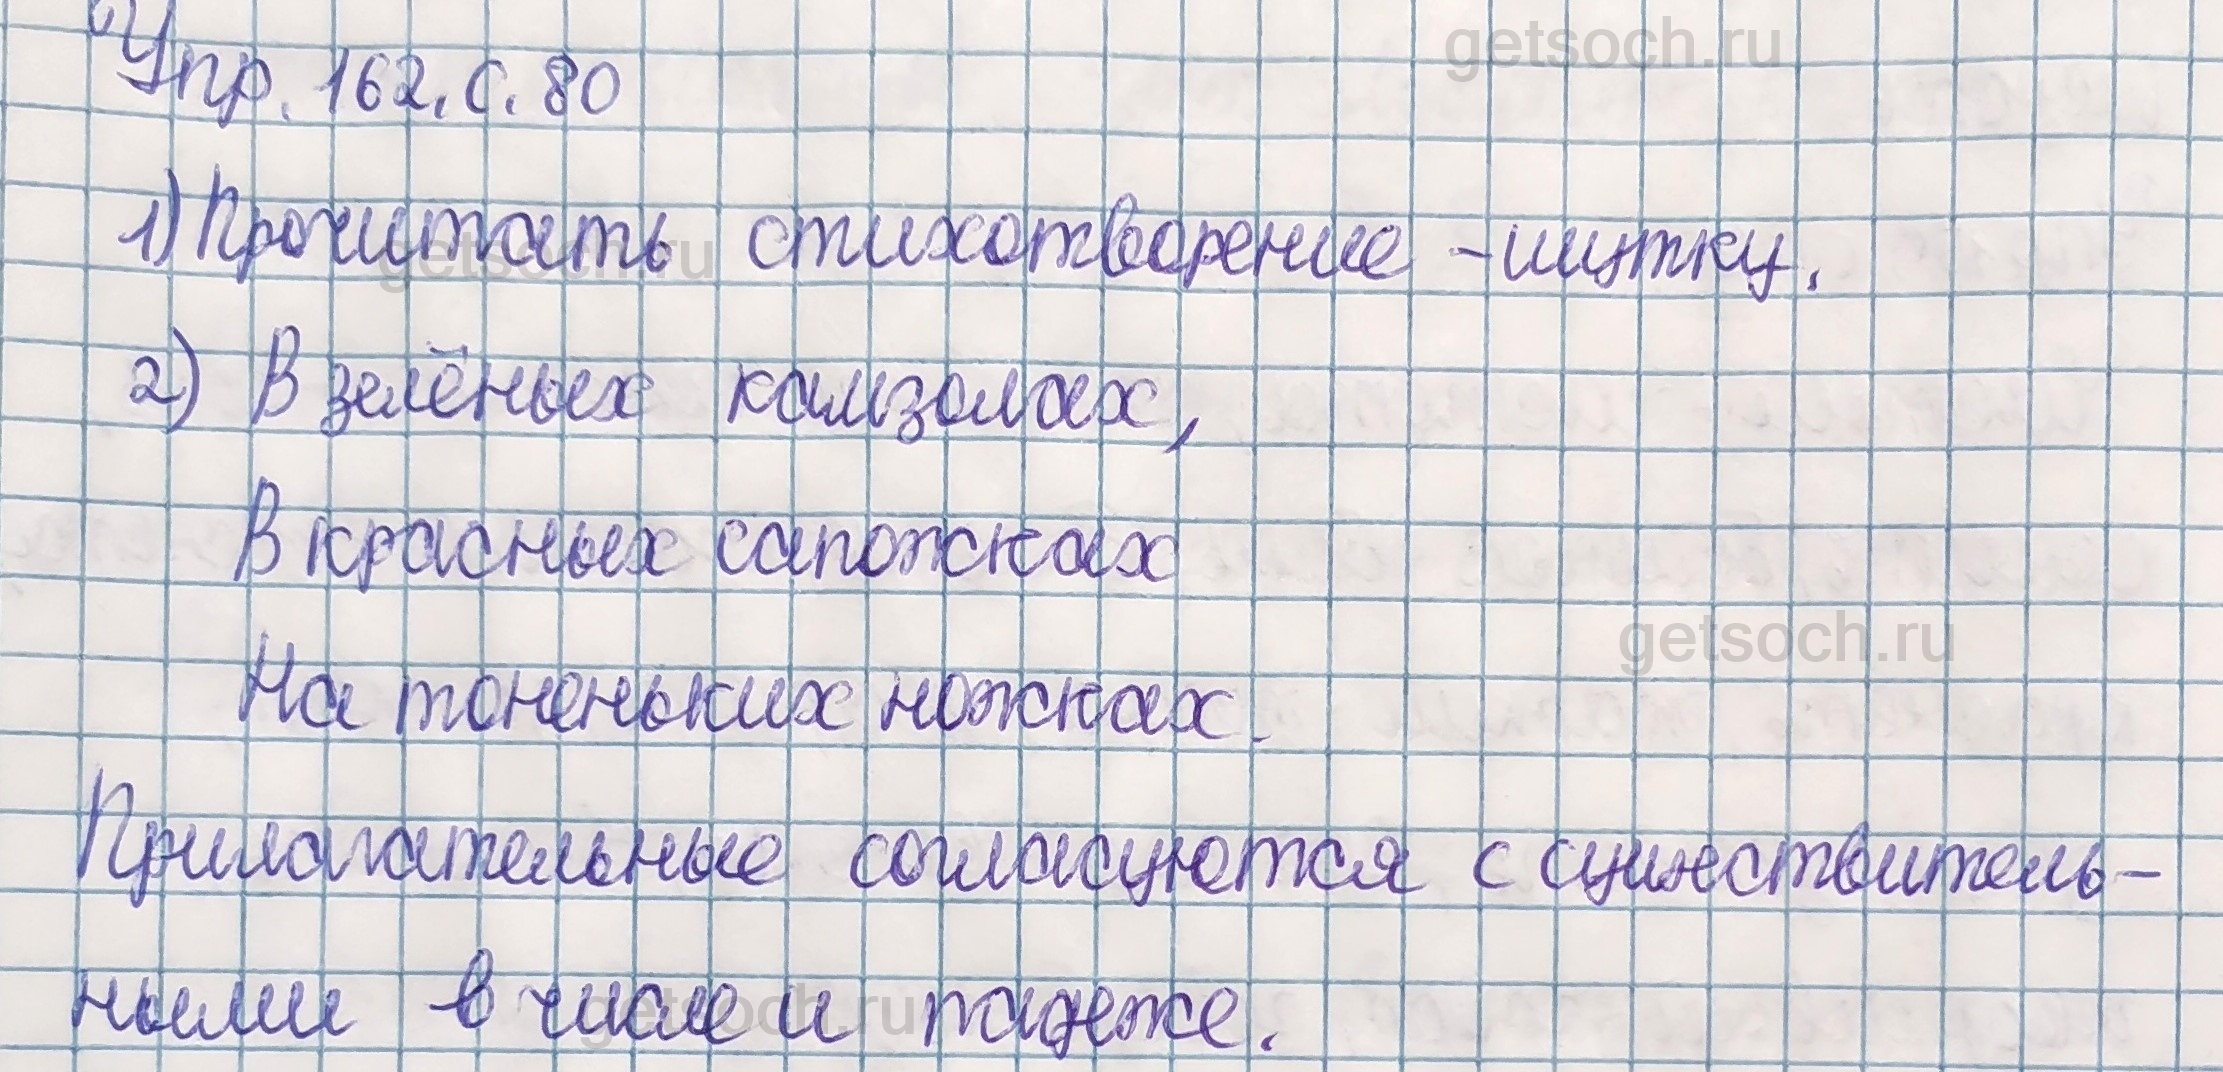 getsoch.ru
Упр. 162. с. 80
1) Прочитать стихотворение - шутку.
getsoch.ru
2) В зелёных камзолах,
В красных сапожках
getsoch.ru
На тоненьких ножках.
Прилагательные согласуются с существитель-
ными в числе и падеже.
getsoch.ru